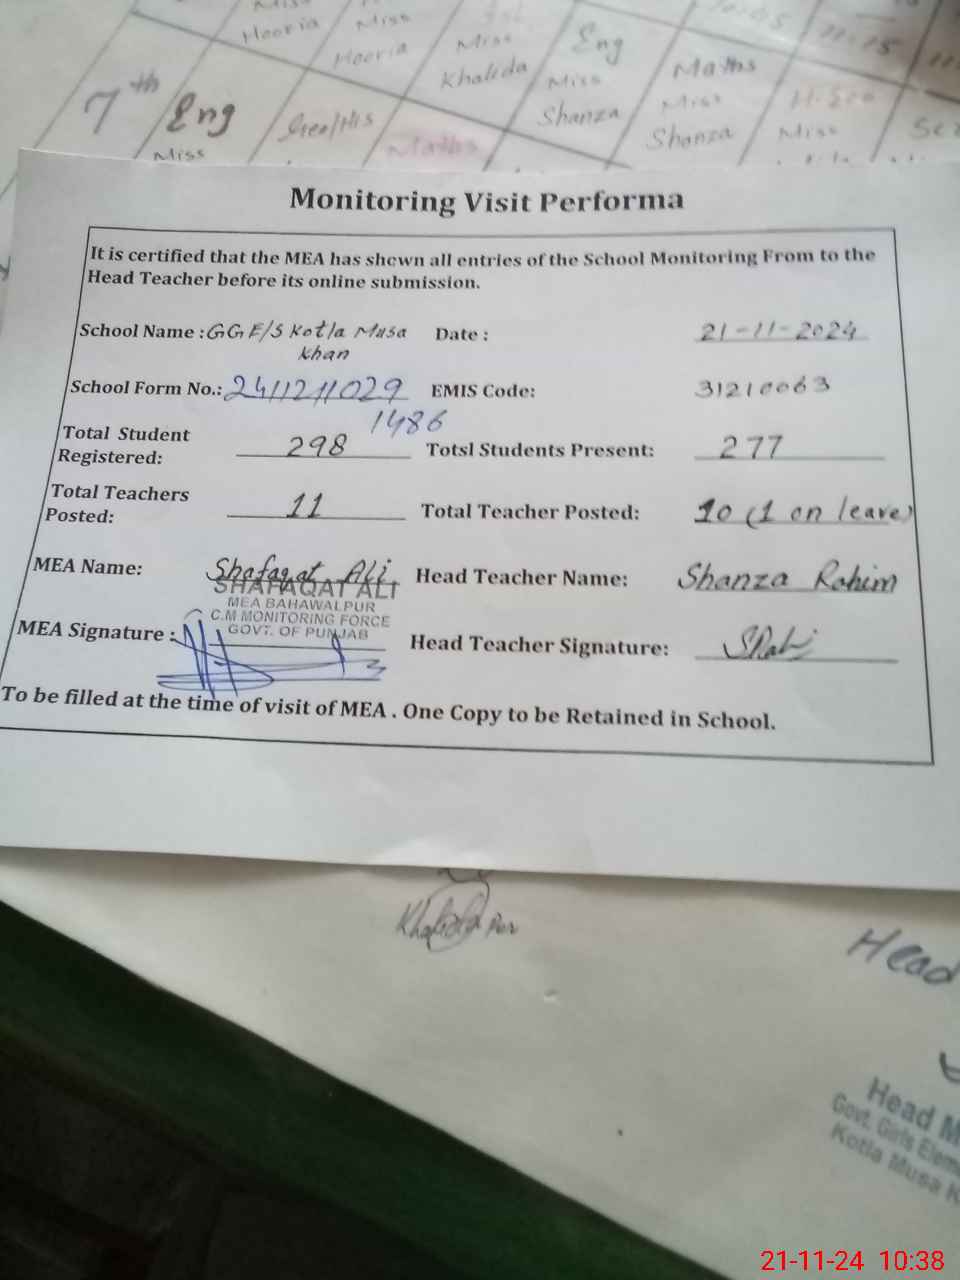 Miss
Hooria
Miss
Hooria
Miss
Khalida
Eng
Miss
Shanza
Maths
Miss
Shanza
11-15
Miss
7th
Eng
Miss
Maths
Monitoring Visit Performa
It is certified that the MEA has shown all entries of the School Monitoring From to the
Head Teacher before its online submission.
School Name : GGE/S Kotla Musa Khan Date : 21-11-2024
School Form No.: 2411211029 1486 EMIS Code: 31210063
Total Student Registered: 298 Totsl Students Present: 277
Total Teachers Posted: 11 Total Teacher Posted: 10 (1 on leave)
MEA Name: Shafaqat Ali Head Teacher Name: Shanza Rahim
SHAFAQAT ALI
MEA BAHAWALPUR
C.M MONITORING FORCE
GOVT. OF PUNJAB
MEA Signature : Head Teacher Signature:
To be filled at the time of visit of MEA . One Copy to be Retained in School.
Head
Head M
Govt. Girls Elem
Kotla Musa K
21-11-24 10:38